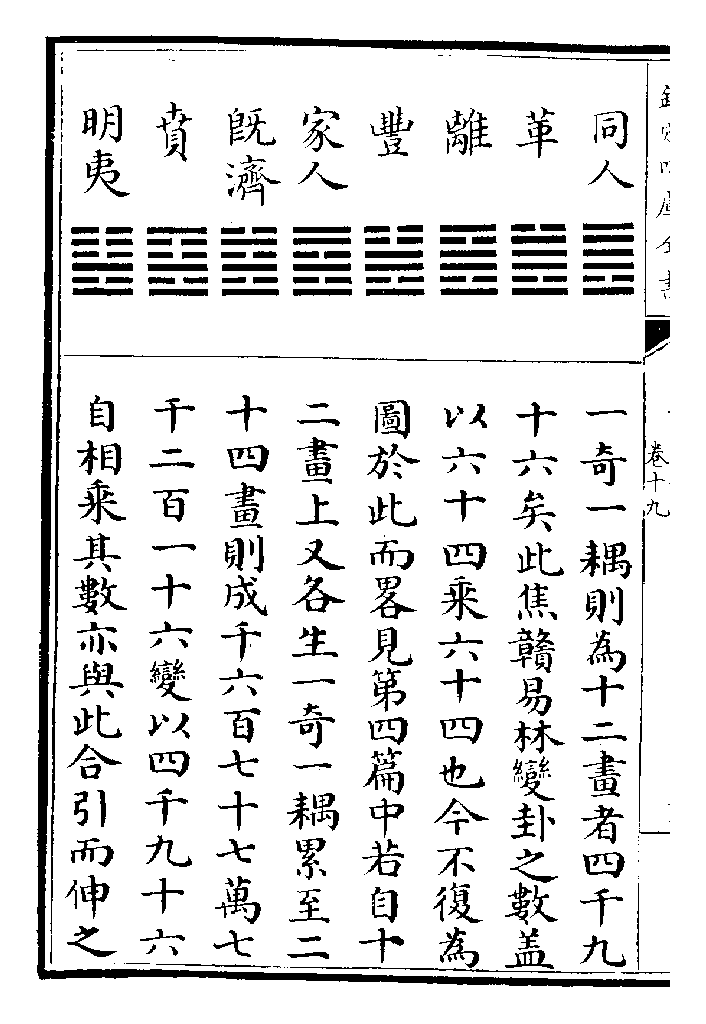 欽定四庫全書
卷十九
同人
革
離
豐
家人
旣濟
賁
明夷
一奇一耦則為十二畫者四千九
十六矣此焦贛易林變卦之數盖
以六十四乘六十四也今不復為
圖於此而畧見第四篇中若自十
二畫上又各生一奇一耦累至二
十四畫則成千六百七十七萬七
千二百一十六變以四千九十六
自相乘其數亦與此合引而伸之